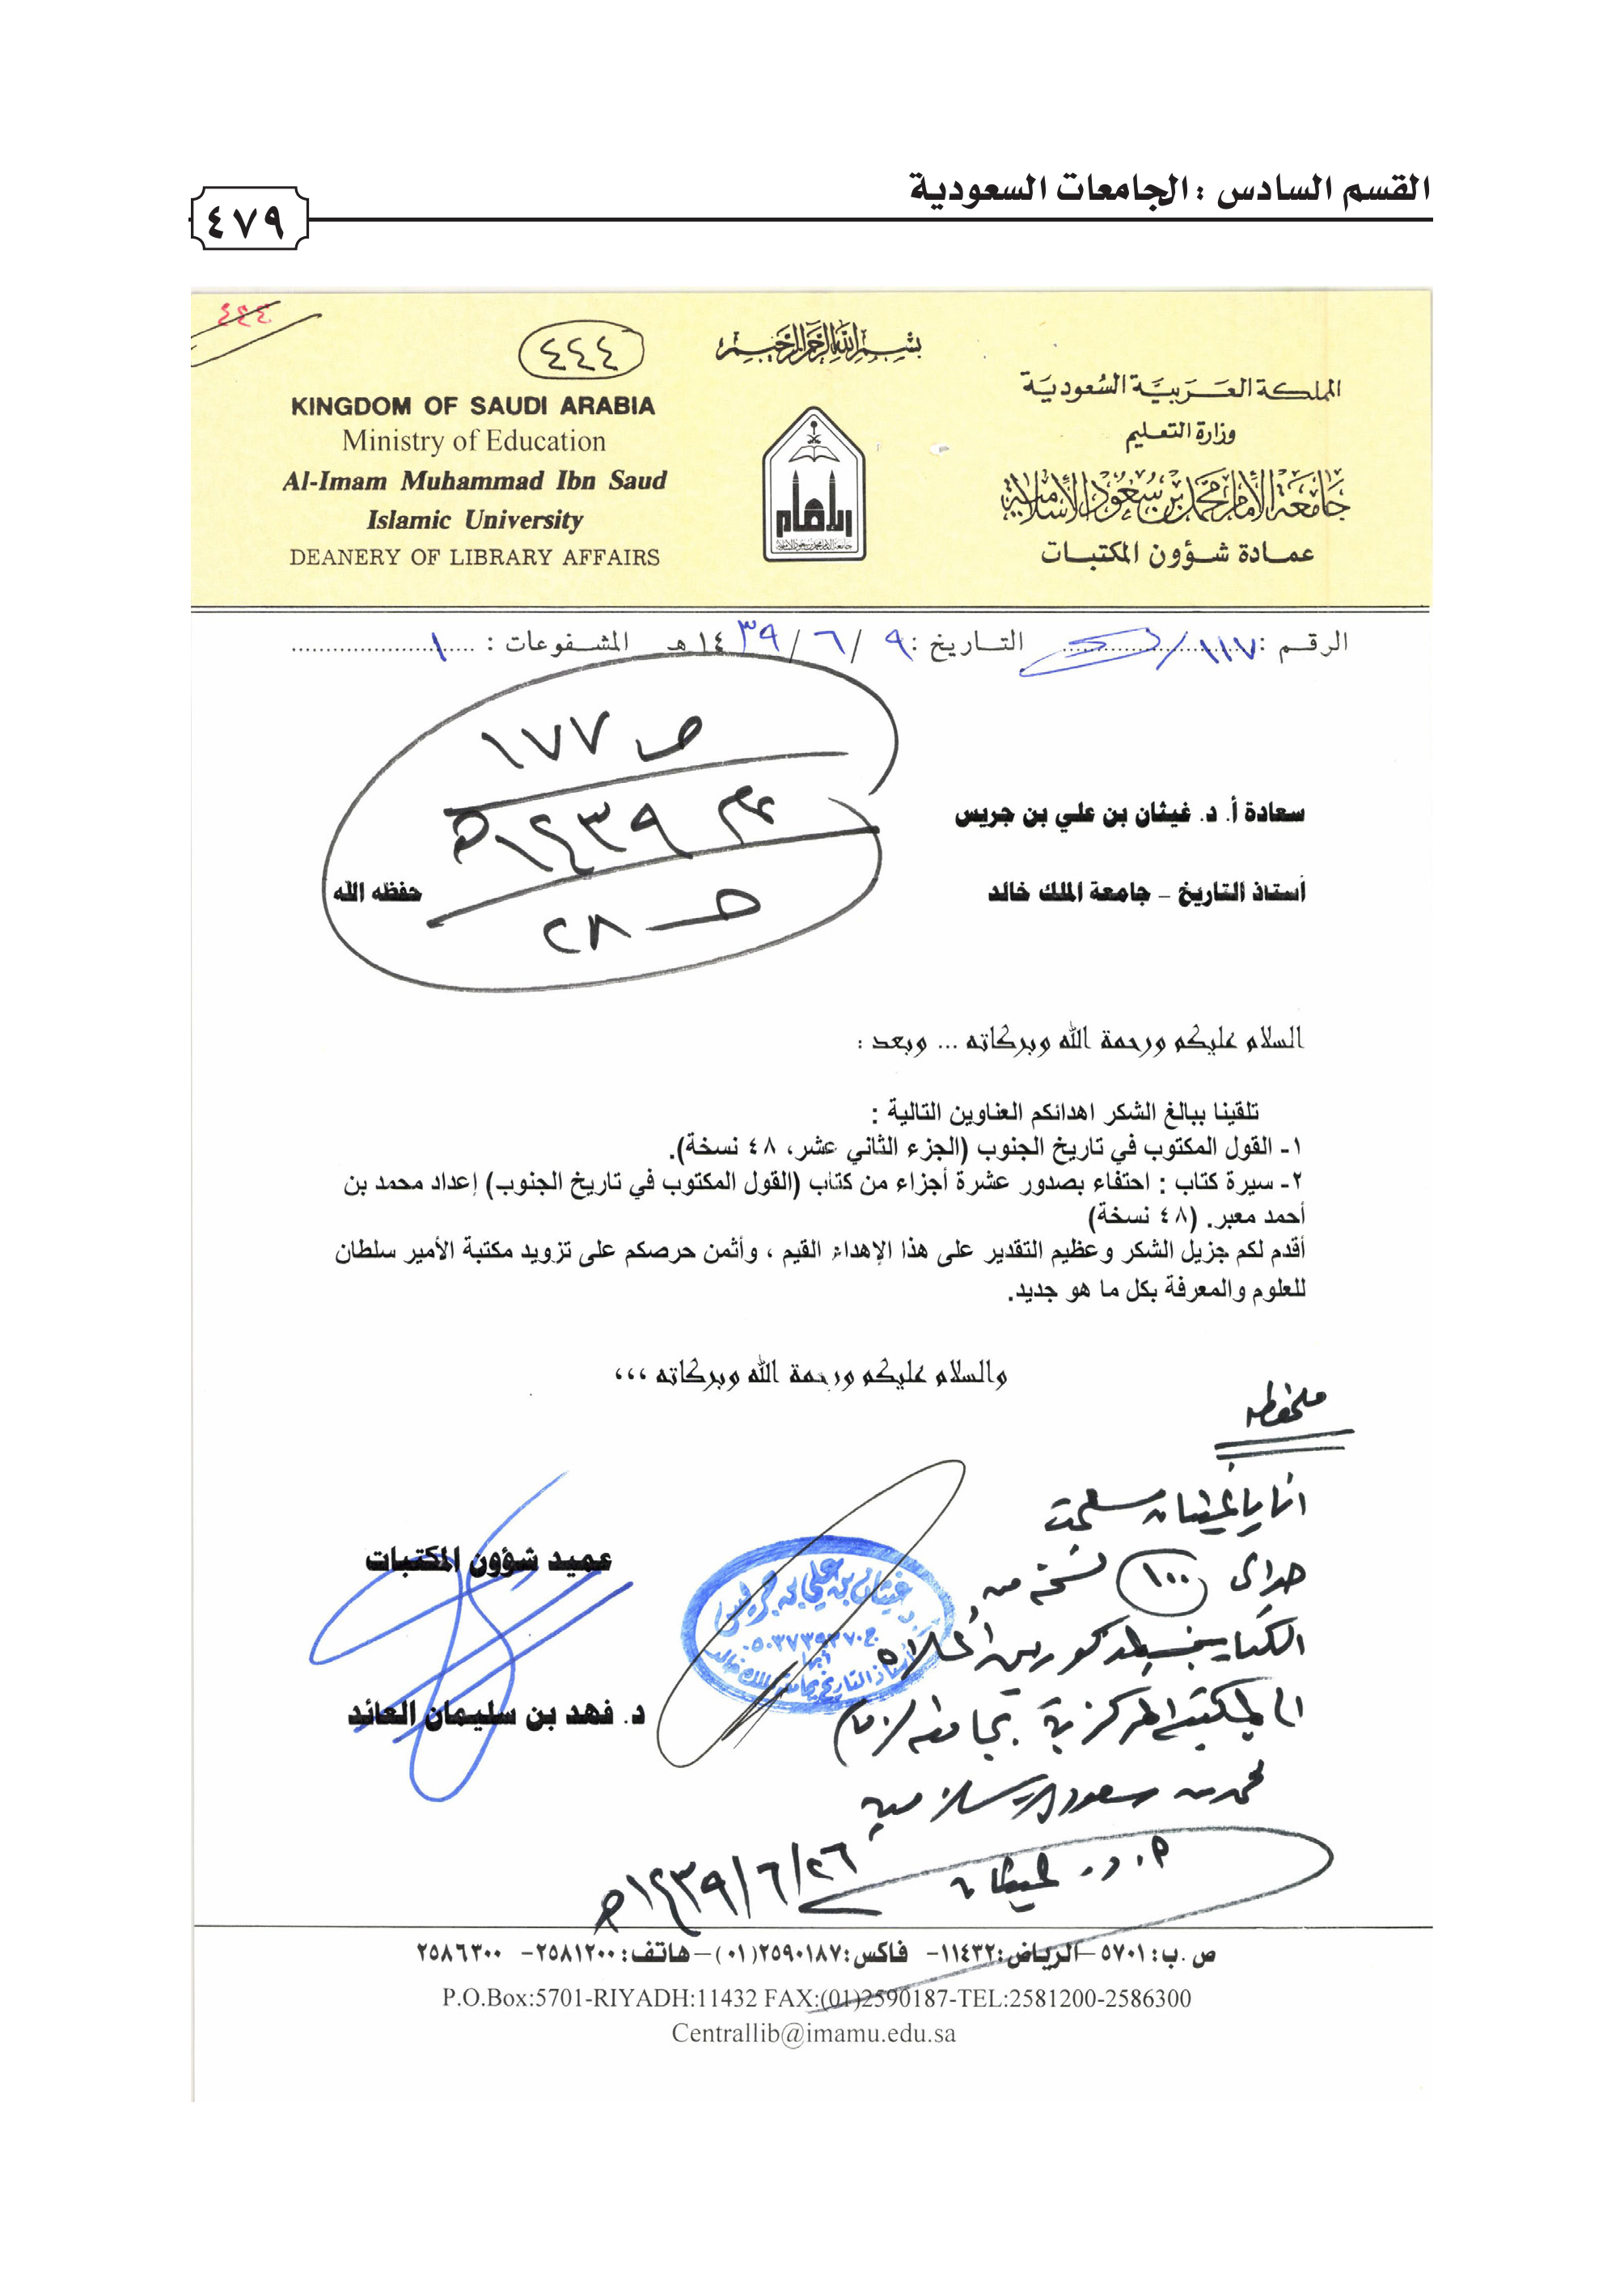 القسم السادس : الجامعات السعودية
٤٧٩
٤٤٤
٤٤٤
بسم الله الرحمن الرحيم
KINGDOM OF SAUDI ARABIA
Ministry of Education
Al-Imam Muhammad Ibn Saud
Islamic University
DEANERY OF LIBRARY AFFAIRS
المملكة العربية السعودية
وزارة التعليم
جامعة الإمام محمد بن سعود الإسلامية
عمادة شؤون المكتبات
الإمام
جامعة الإمام محمد بن سعود الإسلامية
الرقم : ١١٧/ التاريخ : ٩ / ٦ / ١٤٣٩هـ المشفوعات : ١
ص ١٧٧
١٤٣٩هـ
٢٨
سعادة أ. د. غيثان بن علي بن جريس
أستاذ التاريخ – جامعة الملك خالد حفظه الله
السلام عليكم ورحمة الله وبركاته ... وبعد :
تلقينا ببالغ الشكر اهدائكم العناوين التالية :
١- القول المكتوب في تاريخ الجنوب (الجزء الثاني عشر، ٤٨ نسخة).
٢- سيرة كتاب : احتفاء بصدور عشرة أجزاء من كتاب (القول المكتوب في تاريخ الجنوب) إعداد محمد بن
أحمد معبر. (٤٨ نسخة)
أقدم لكم جزيل الشكر وعظيم التقدير على هذا الإهداء القيم ، وأثمن حرصكم على تزويد مكتبة الأمير سلطان
للعلوم والمعرفة بكل ما هو جديد.
والسلام عليكم ورحمة الله وبركاته ،،،
ملحوظة
انا يا غيثان سلمت
١٠٠ نسخة من
الكتابين المذكورين أعلاه
الى المكتبة المركزية بجامعة الإمام
محمد بن سعود الإسلامية
أ. د. غيثان
١٤٣٩/٦/٢٦هـ
عميد شؤون المكتبات
د. فهد بن سليمان العائد
غيثان بن علي بن جريس
أبها
أستاذ التاريخ بجامعة الملك خالد
ص.ب: ٥٧٠١ –الرياض: ١١٤٣٢– فاكس: ٢٥٩٠١٨٧(٠١)–هاتف: ٢٥٨١٢٠٠– ٢٥٨٦٣٠٠
P.O.Box:5701-RIYADH:11432 FAX:(01)2590187-TEL:2581200-2586300
Centrallib@imamu.edu.sa